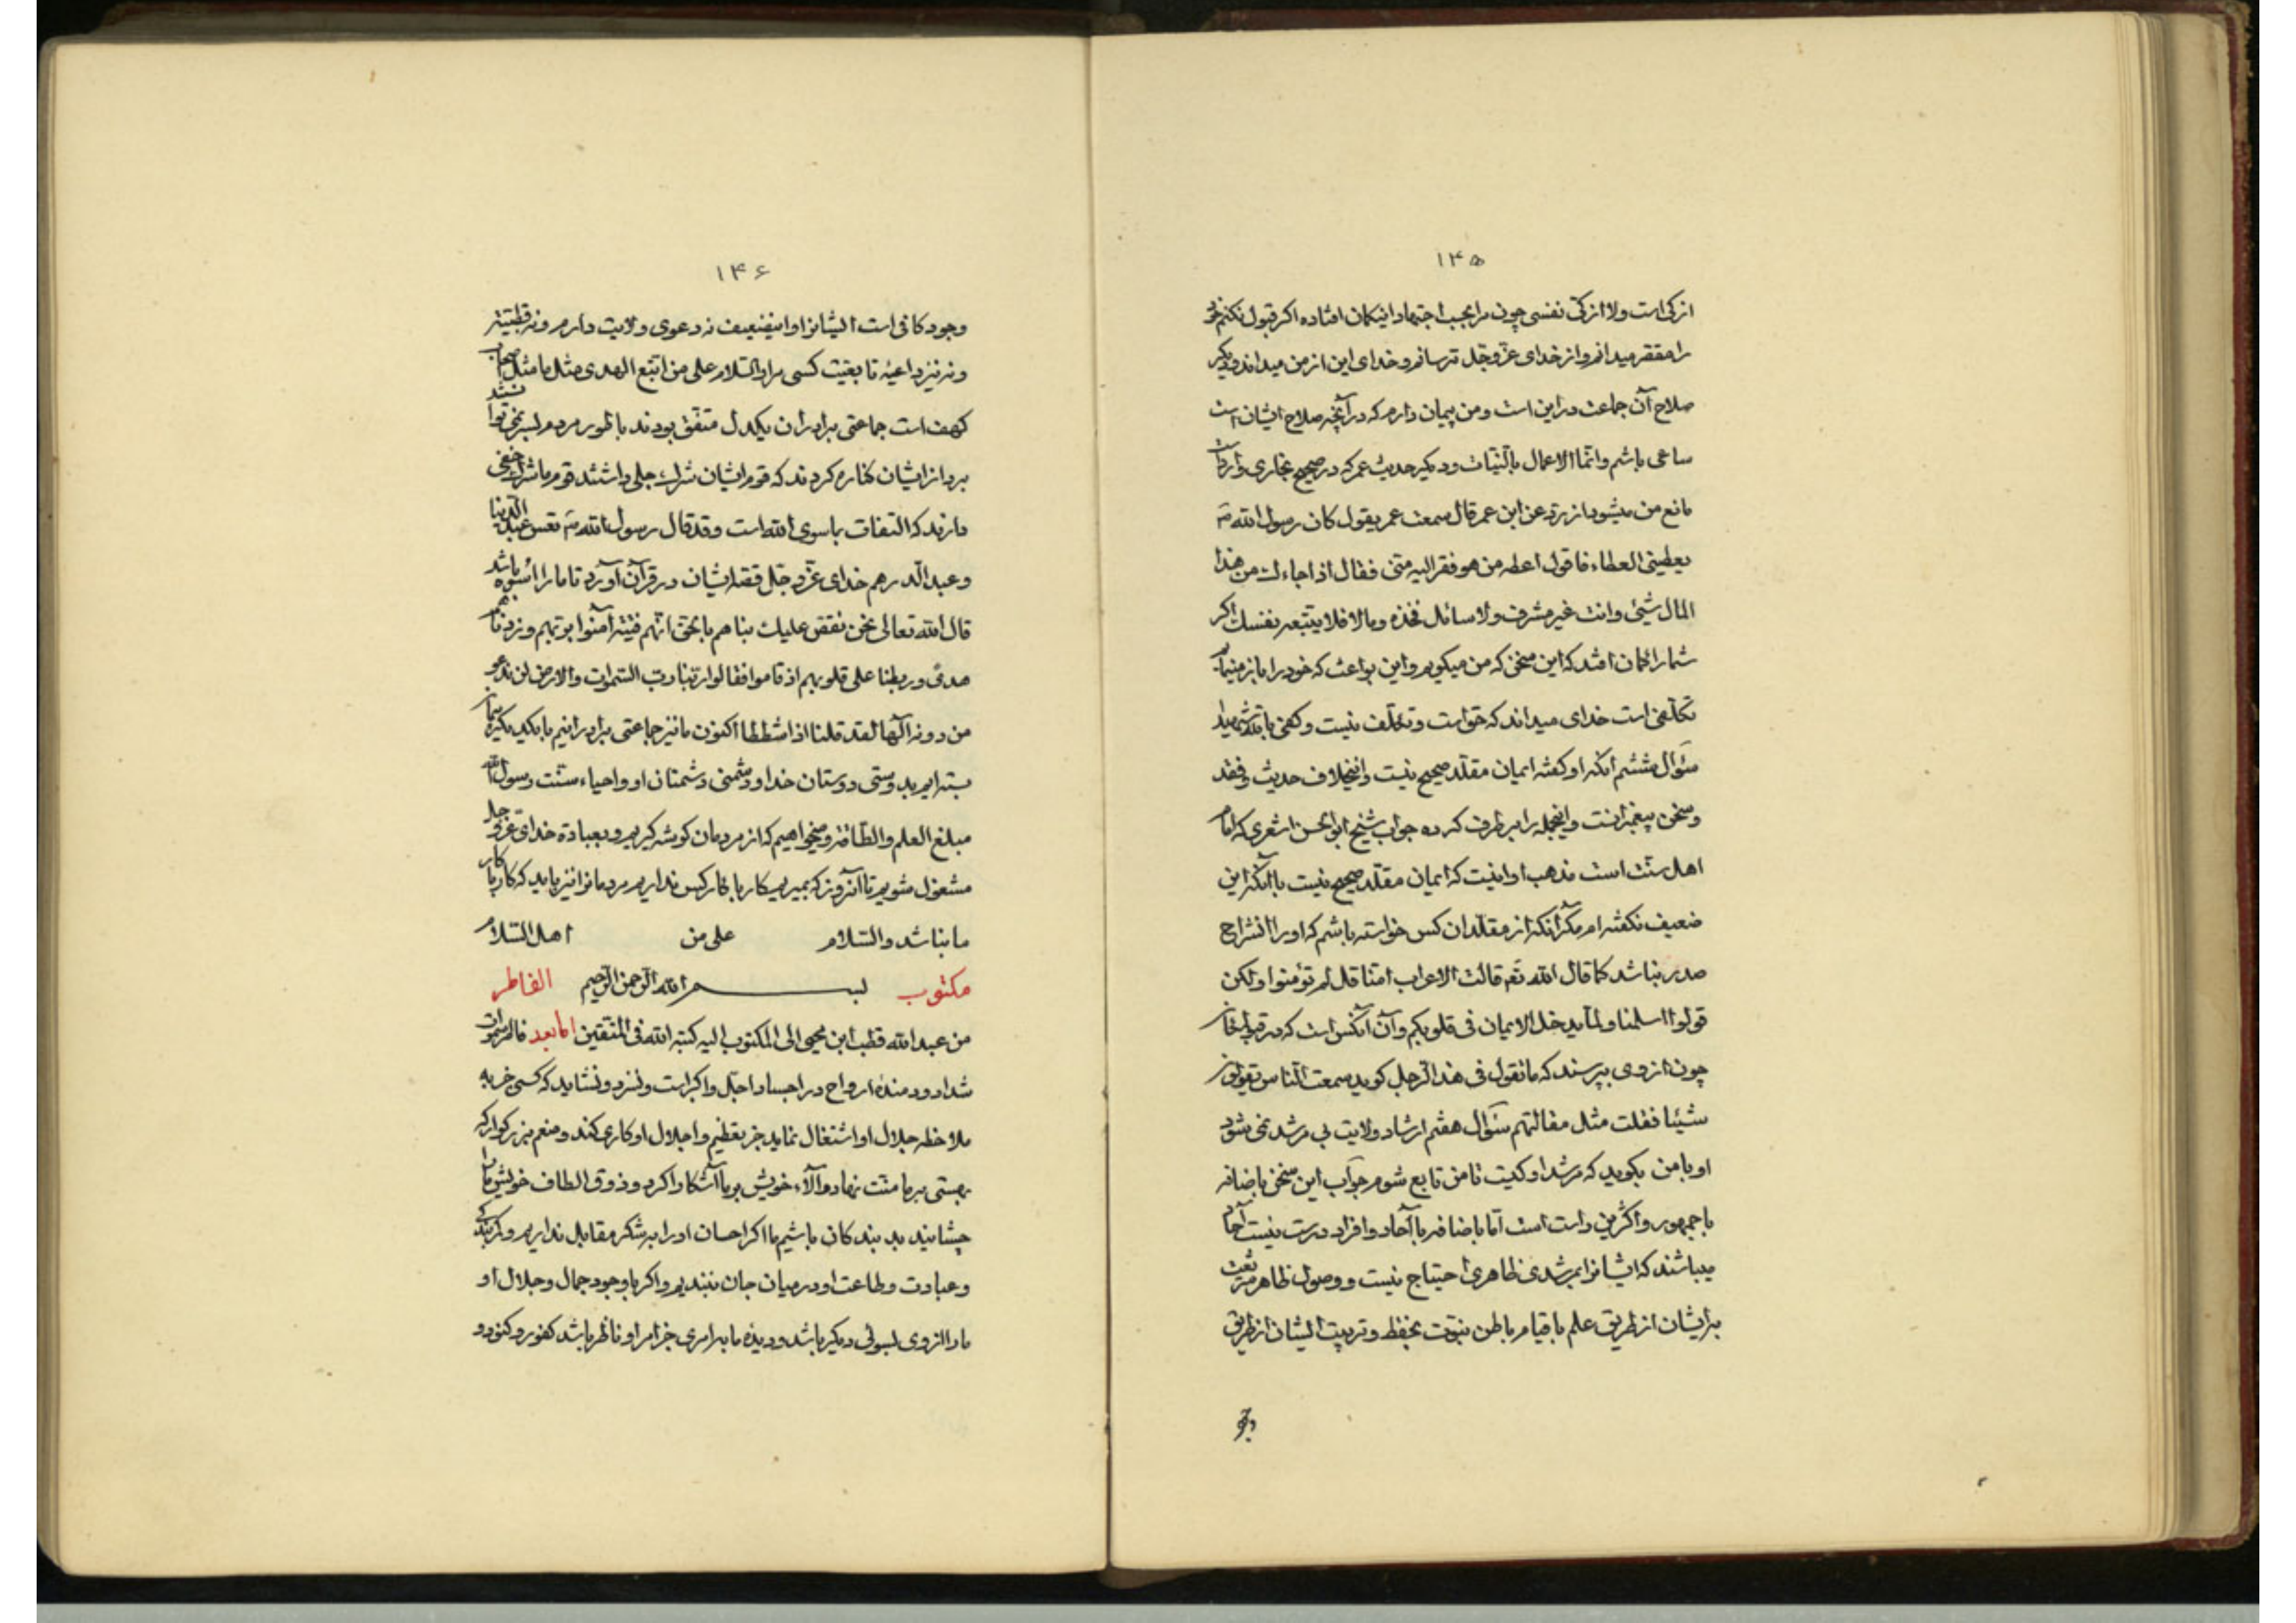 ۱۴۵
ازکی است ولا ازکی نفسی چون مرا بحسب اجتهاد اینکمان افتاده اکر قبول نکنم خود
را مقصر میدانم و از خدای عزوجل ترسانم و خدای این از من میداند و دیکر
صلاح آن جماعت در این است و من پیمان دارم که در آنچه صلاح ایشان است
ساعی باشم و انّما الاعمال بالنّیّات و دیکر حدیث عمر که در صحیح بخاری وارد است
مانع من میشود از رد عن ابن عمر قال سمعت عمر یقول کان رسول الله صَ
یعطینی العطاء فاقول اعطه من هو فقر الیه منّی فقال اذا جاءک من هذا
المال شیئ وانت غیر مشرف ولا سائل فخذه ومالا فلا تتبعه نفسک اکر
شما را کمان افتد که این سخن که من میکویم و این بواعث که خود را باز مینمایم
تکلّفی است خدای میداند که حق است و تکلّف نیست وکفی بالله شهیدا
سؤال ششم آنکه او کفته ایمان مقلّد صحیح نیست و اینخلاف حدیث و فقه
وسخن پیغمبرانست و اینجمله را برطرف کرده جواب شیخ ابوالحسن اشعری که امام
اهل سنّت است مذهب او اینست که ایمان مقلّد صحیح نیست با آنکه این
ضعیف نکفته ام مکر آنکه از مقلّدان کس خواسته باشم که او را انشراح
صدر نباشد کما قال الله تَع قالت الاعراب امنّا قل لم تؤمنوا ولکن
قولوا اسلمنا ولمّا یدخل الایمان فی قلوبکم و آن آنکس است که در قبر
چون از وی بپرسند که ما تقول فی هذا الرّجل کوید سمعت النّاس یقولون
شیئا فقلت مثل مقالتهم سؤال هفتم ارشاد ولایت بی مرشد نمی شود
او با من بکوید که مرشد او کیست تا من تابع شوم جواب این سخن باضافه
با جمهور و اکثر من راست است امّا باضافه با آحاد و افراد درست نیست آحاد
میباشند که ایشانرا بمرشدی ظاهری احتیاج نیست و وصول ظاهر
برایشان از طریق علم با قیام باطن نبوّت بحفظ و تربیت ایشان از طریق
وجود
۱۴۶
وجود کافی است ایشانرا و اینضعیف نه دعوی ولایت دارم و نه قطبیّت
و نه نیز داعیه تابعیّت کسی مرا والسّلام علی من اتّبع الهدی مثل ما مثل اصحاب
کهف است جماعتی برادران یکدل متّفق بودند با طور مردم بسر نمی توانستند
برد از ایشان کناره کردند که قوم ایشان شرک جلی داشتند قوم ما شرک خفی
دارند که التفات باسوی الله است وقد قال رسول الله صَ تعس عبد الدّینار
و عبد الدّرهم خدای عزّوجلّ قصه ایشان در قرآن آورد تا ما را اسوه باشد
قال الله تعالی نحن نقصّ علیک نباهم بالحقّ انّهم فتیة آمنوا بربّهم وزدناهم
هدیً وربطنا علی قلوبهم اذ قاموا فقالوا ربّنا ربّ السّموات والارض لن ندعو
من دونه الٰهاً لقد قلنا اذا شططا اکنون ما نیز جماعتی برادرانیم با یکدیکر پیمان
بسته ایم بدوستی دوستان خدا و دشمنی دشمنان او و احیاء سنّت رسول الله
مبلغ العلم والطّاقة و میخواهیم که از مردمان کوشه کیریم و بعبادة خدای عزّوجلّ
مشغول شویم تا آنروز که بمیریم کار با کار کس نداریم مردمانرا نیز باید که کار با کار
ما نباشد والسّلام علی من اهل السّلام
مکتوب بسم الله الرّحمن الرّحیم الفاطر
من عبد الله قطب ابن محیی الی المکتوب الیه کتبه الله فی المتّقین امّا بعد فاطر سموات
شداد و دمندهٔ ارواح در اجساد اجلّ و اکبر است و نسزد و نشاید که کسی خر به
ملاحظه جلال او اشتغال نماید جز بتعظیم و اجلال او کاری کند و منعم بزرکوار که
بهستی بر ما منّت نهاد و آلاء خویش بر ما آشکارا کرد و ذوق الطاف خویش ما را
چشانید بد بندکان باشیم ما اکر احسان او را به شکر مقابل نداریم و کمر بندکی
و عبادت و طاعت او در میان جان نبندیم و اکر با وجود جمال و جلال او
ما را روی بسوئی دیکر باشد و دیدهٔ ما بر امری جز امر او ناظر باشد کفور و کنود و